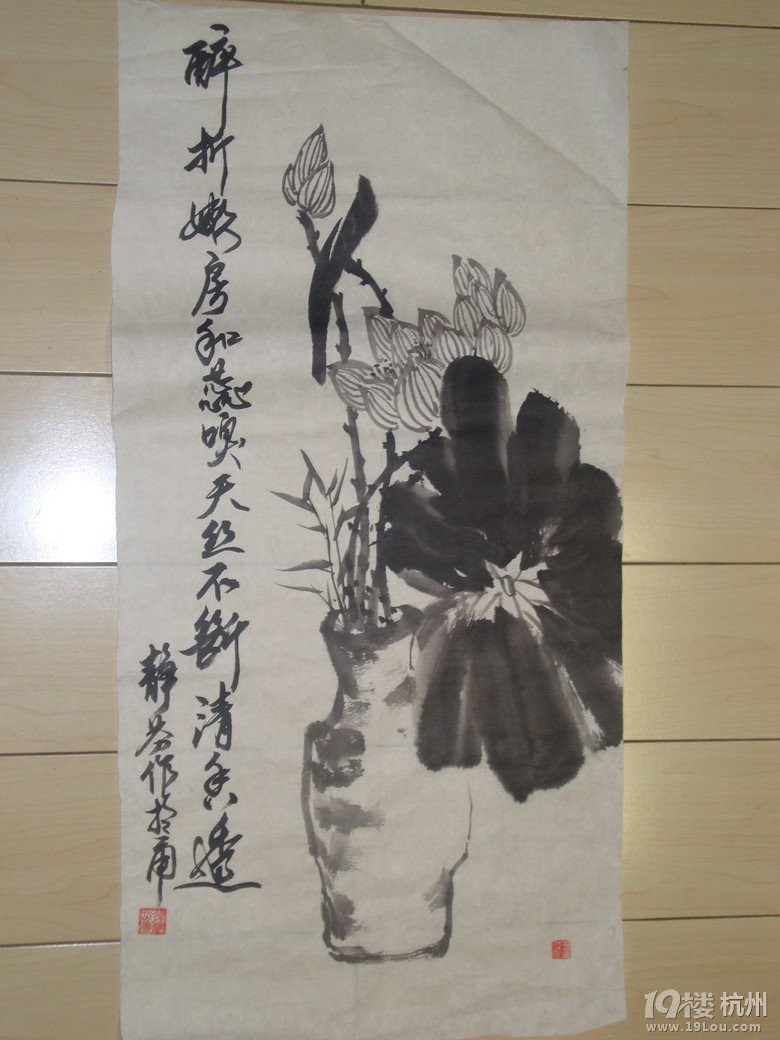 醉折嫩房和蕊嗅天丝不断清香透
静芬作於甬
19楼 杭州
www.19Lou.com